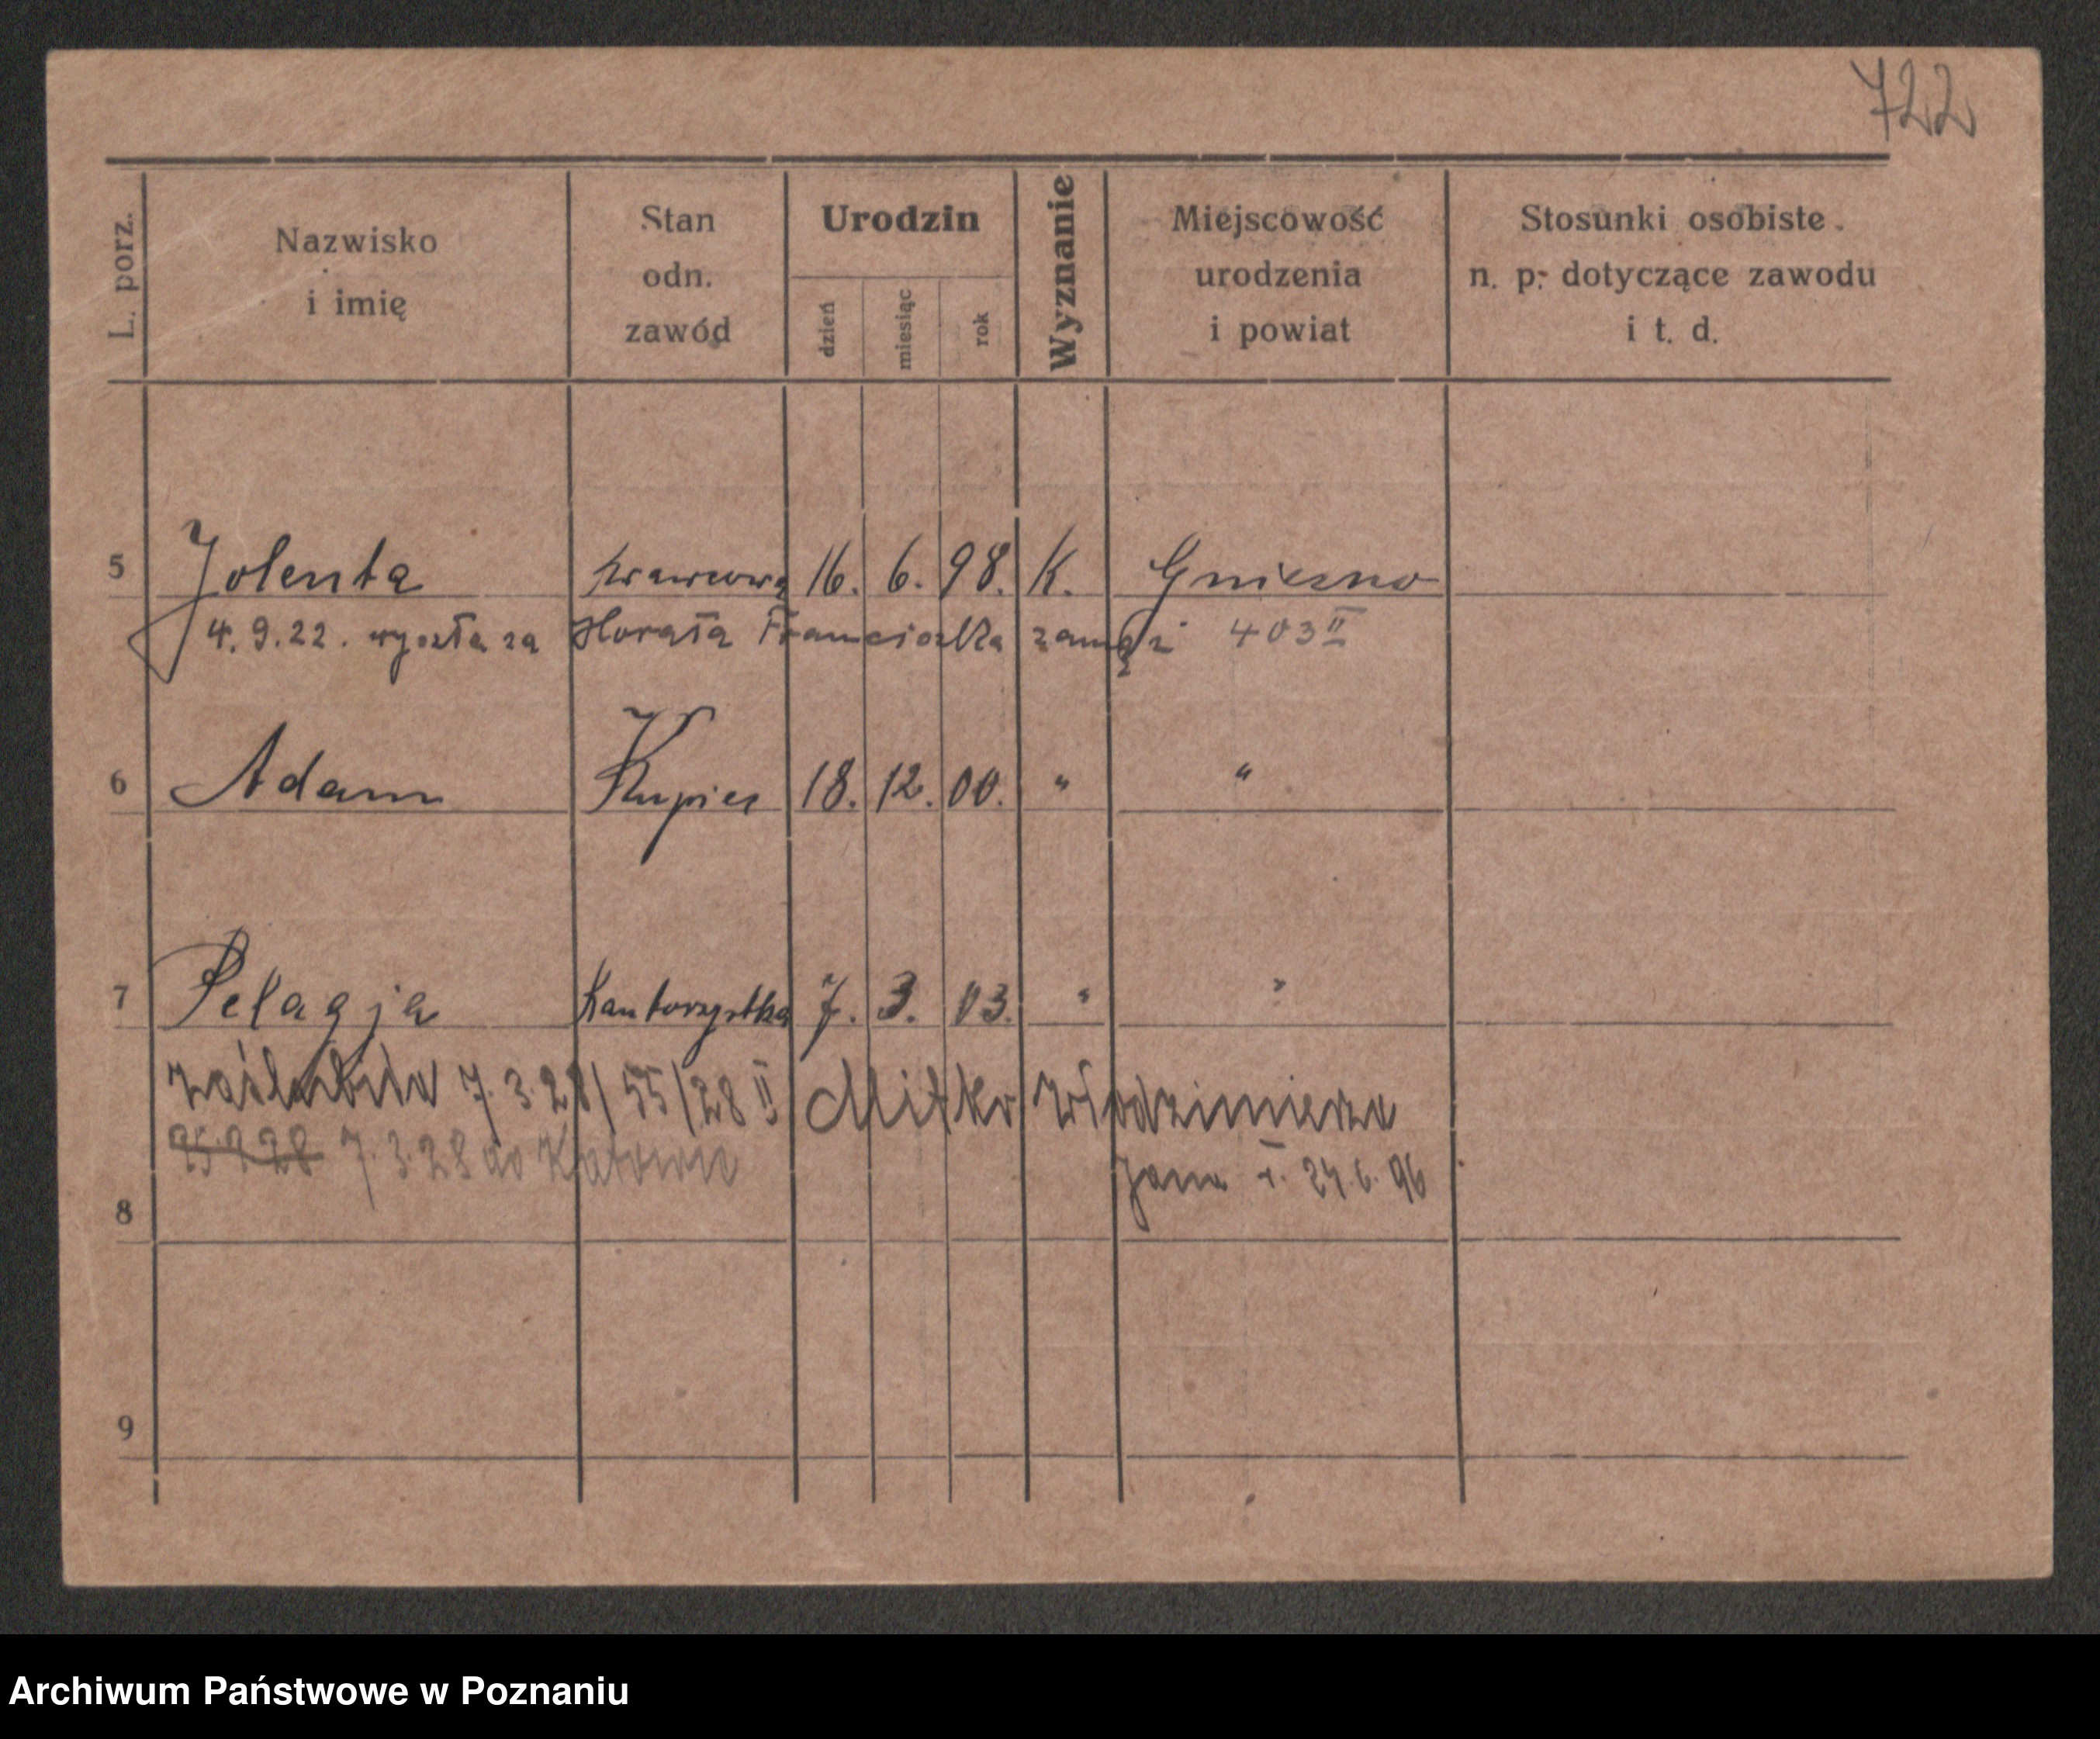 722
L. porz.
Nazwisko
i imię
Stan
odn.
zawód
Urodzin
dzień
miesiąc
rok
Wyznanie
Miejscowość
urodzenia
i powiat
Stosunki osobiste
n. p. dotyczące zawodu
i t. d.
5 Jolenta krawcowa 16. 6. 98. K. Gniezno
4.9.22. wyszła za Horała Franciszka zamąż 403 II
6 Adam Kupiec 18. 12. 00. " "
7 Pelagja Kantorzystka 7. 3. 03. " "
zaślubiła 7.3.28/55/28 II Mitko Włodzimierza
7.3.28 do Katowic Jana 24.6.96
8
9
Archiwum Państwowe w Poznaniu